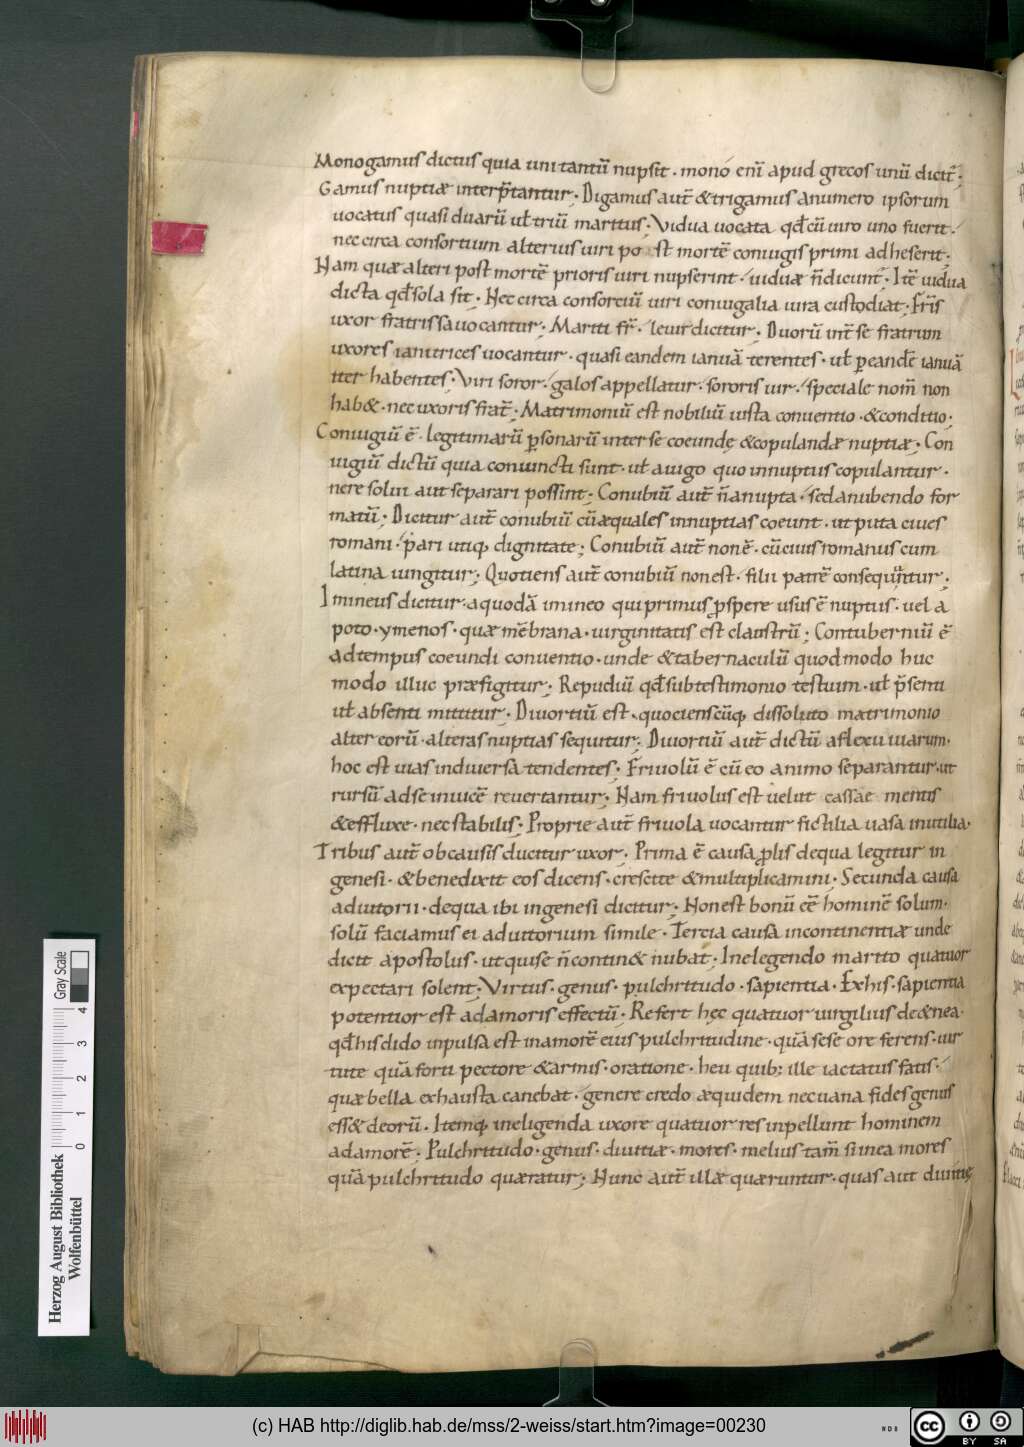 Monogamus dictus quia uni tantū nupsit · mono enī apud grecos unū dicit̄;
Gamus nuptiæ interp̄tantur; Digamus aut̄ & trigamus a numero ipsorum
uocatus quasi duarū uł triū maritus; Vidua uocata qđ cū uiro uno fuerit·
nec circa consortium alterius uiri post mortē coniugis primi adheserit;
Nam quæ alteri post mortē prioris uiri nupserint · uiduæ n̄ dicunt̄; Itē uidua
dicta qđ sola sit; Nec circa consorciū uiri coniugalia iura custodiat; Fr̄is
uxor fratrissa uocantur; Mariti fr̄ · leuir dicitur; Duorū int̄ se fratrum
uxores ianitrices uocantur · quasi eandem ianuā terentes · uł ꝑ eandē ianuā
iter habentes; Viri soror · galos appellatur · sororis uir · speciale nom̄ non
hab& · nec uxoris frat̄; Matrimoniū est nobiliū iusta conuentio · & conditio;
Coniugiū ē · legitimarū ꝑsonarū inter se coeundę & copulandæ nuptiæ; Con
iugiū dictū quia coniuncti sunt · uł a iugo quo in nuptus copulantur ·
ne resolui aut separari possint; Conubiū aut̄ n̄ a nupta · sed a nubendo for
matū; Dicitur aut̄ conubiū cū æquales in nuptias coeunt · ut puta ciues
romani · pari utiq; dignitate; Conubiū aut̄ non ē · cū ciuis romanus cum
latina iungitur; Quotiens aut̄ conubiū non est · filii patrē consequntur;
Imineus dicitur · a quodā imineo qui primus ꝓspere usus ē nuptiis · uel a
poto · ymenos · quæ mēbrana · uirginitatis est claustrū; Contuberniū ē
ad tempus coeundi conuentio · unde & tabernaculū quod modo huc
modo illuc præfigitur; Repudiū qđ sub testimonio testium · uł p̄senti
uł absenti mittitur; Diuortiū est · quocienscūq; dissoluto matrimonio
alter eorū · alteras nuptias sequitur; Diuortiū aut̄ dictū a flexu uiarum ·
hoc est uias in diuersa tendentes; Friuolū ē cū eo animo separantur · ut
rursū ad se inuicē reuertantur; Nam friuolus est uelut cassae mentis
& effluxe · nec stabilis; Proprie aut̄ friuola uocantur fictilia uasa inutilia·
Tribus aut̄ ob causis ducitur uxor; Prima ē causa ꝓlis de qua legitur in
genesi · & benedixit eos dicens · crescite & multiplicamini; Secunda causa
adiutorii · de qua ibi in genesi dicitur; Non est bonū eē hominē solum ·
solū faciamus ei adiutorium simile · Tercia causa incontinentiæ unde
dicit apostolus · ut qui se n̄ contin& nubat; In elegendo marito quatuor
expectari solent; Virtus · genus · pulchritudo · sapientia · Ex his · sapientia
potentior est ad amoris effectū; Refert hęc quatuor uirgilius de enea ·
qđ his dido inpulsa est in amorē eius pulchritudine · quā sese ore ferens · uir
tute quā forti pectore & armis · oratione · heu quib; ille iactatus fatis ·
quæ bella exhausta canebat · genere credo æquidem nec uana fides genus
ess& deorū · Itemq; in eligenda uxore quatuor res inpellunt hominem
ad amorē; Pulchritudo · genus · diuitiæ · mores · melius tam̄ si in ea mores
quā pulchritudo quæratur; Nunc aut̄ illæ quæruntur · quas aut diuitię
Herzog August Bibliothek
Wolfenbüttel
0 1 2 3 4
Gray Scale
(c) HAB http://diglib.hab.de/mss/2-weiss/start.htm?image=00230
NDB
cc BY SA